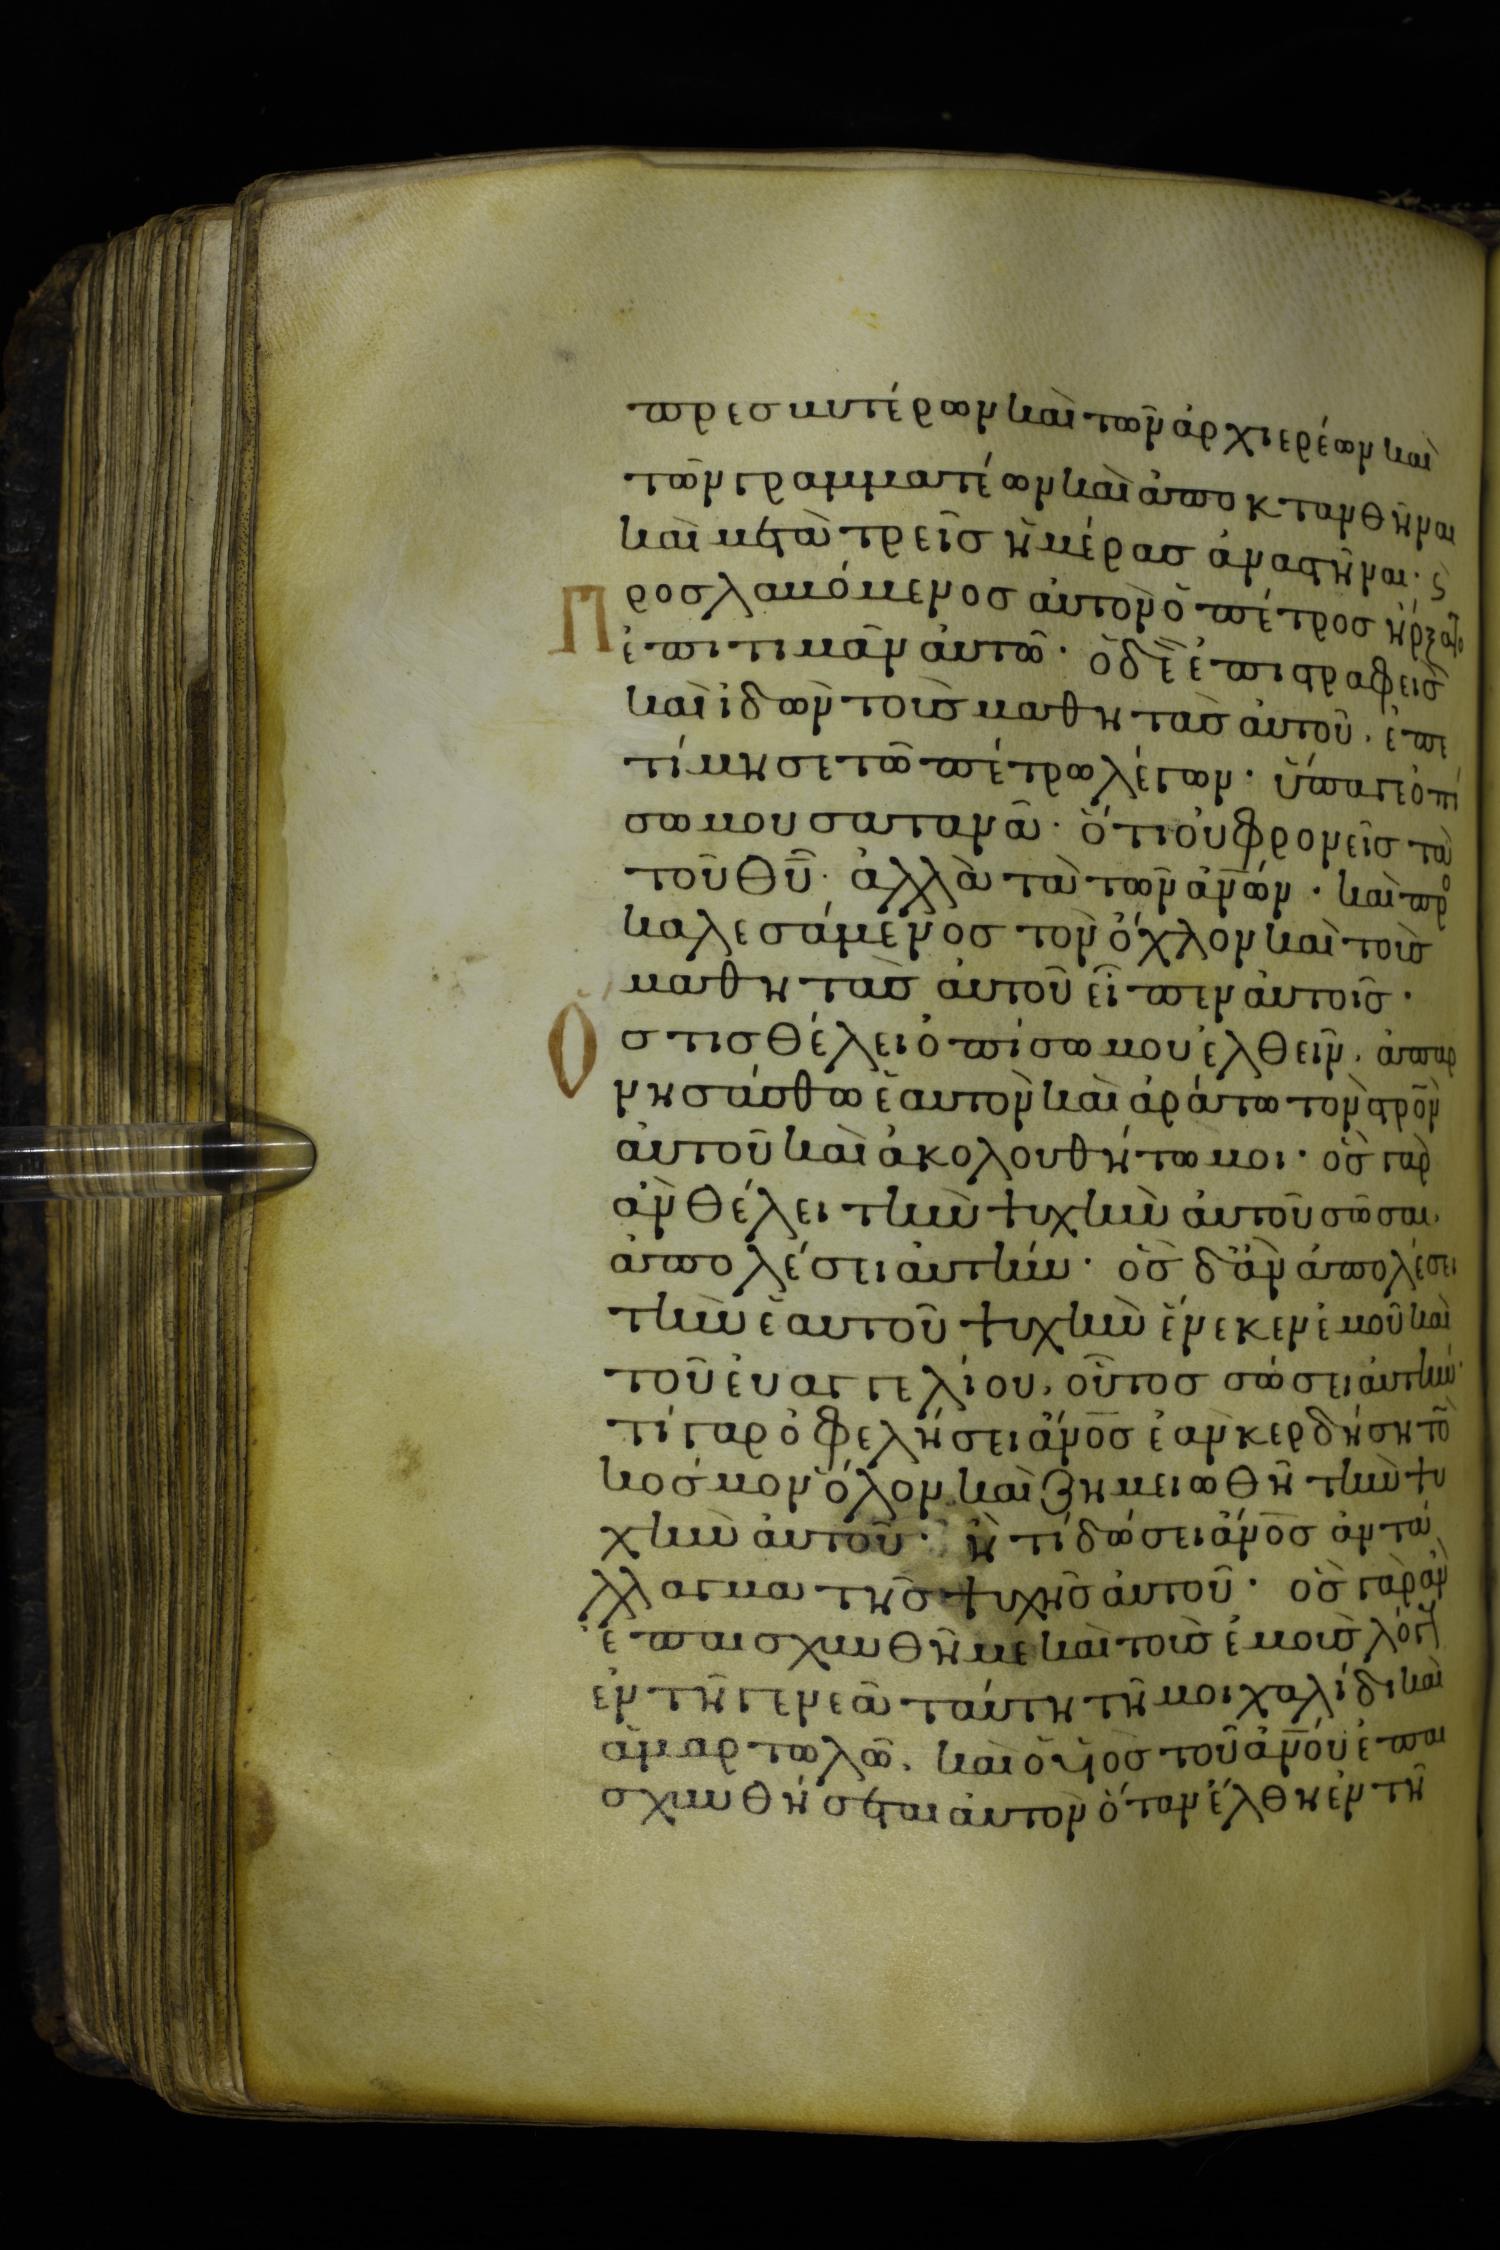 πρεσβυτέρων καὶ τῶν ἀρχιερέων καὶ
τῶν γραμματέων καὶ ἀποκτανθῆναι
καὶ μετὰ τρεῖς ἡμέρας ἀναστῆναι· ϛ
Προσλαβόμενος αὐτὸν ὁ πέτρος ἤρξατο
ἐπιτιμᾶν αὐτῶ· ὁ δὲ ἐπιστραφεὶς
καὶ ἰδὼν τοὺς μαθητὰς αὐτοῦ, ἐπε
τίμησε τῶ πέτρω λέγων· ὕπαγε ὀπί
σω μου σατανᾶ· ὅτι οὐ φρονεῖς τὰ
τοῦ θυ̅· ἀλλὰ τὰ τῶν ἀνω̅ν· καὶ προ
καλεσάμενος τὸν ὄχλον καὶ τοὺς
μαθητὰς αὐτοῦ εἶπεν αὐτοῖς·
Ὅστις θέλει ὀπίσω μου ἐλθεῖν, ἀπαρ
νησάσθω ἑαυτὸν καὶ ἀράτω τὸν στρο̅ν
αὐτοῦ καὶ ἀκολουθήτω μοι· ὃς γὰρ
ἂν θέλει τὴν ψυχὴν αὐτοῦ σῶσαι,
ἀπολέσει αὐτήν· ὃς δ' ἂν ἀπολέσει
τὴν ἑαυτοῦ ψυχὴν ἕνεκεν ἐμοῦ καὶ
τοῦ εὐαγγελίου, οὗτος σώσει αὐτήν·
τί γαρ ὀφελήσει ἄνο̅ς ἐὰν κερδήση τὸ
κόσμον ὅλον καὶ ζημειωθῆ τὴν ψυ
χὴν αὐτοῦ· ἢ τί δώσει ἄνο̅ς ἀντά
λλαγμα τῆς ψυχῆς αὐτοῦ· ὃς γὰρ ἂν
ἐπαισχυνθῆ με καὶ τοὺς ἐμοὺς λόγους
ἐν τῆ γενεᾶ ταύτη τῆ μοιχαλίδι καὶ
ἁμαρτωλῶ, καὶ ὁ υἱὸς τοῦ ἀνο̅υ ἐπαι
σχυνθήσεται αὐτὸν ὅταν ἔλθη ἐν τῆ